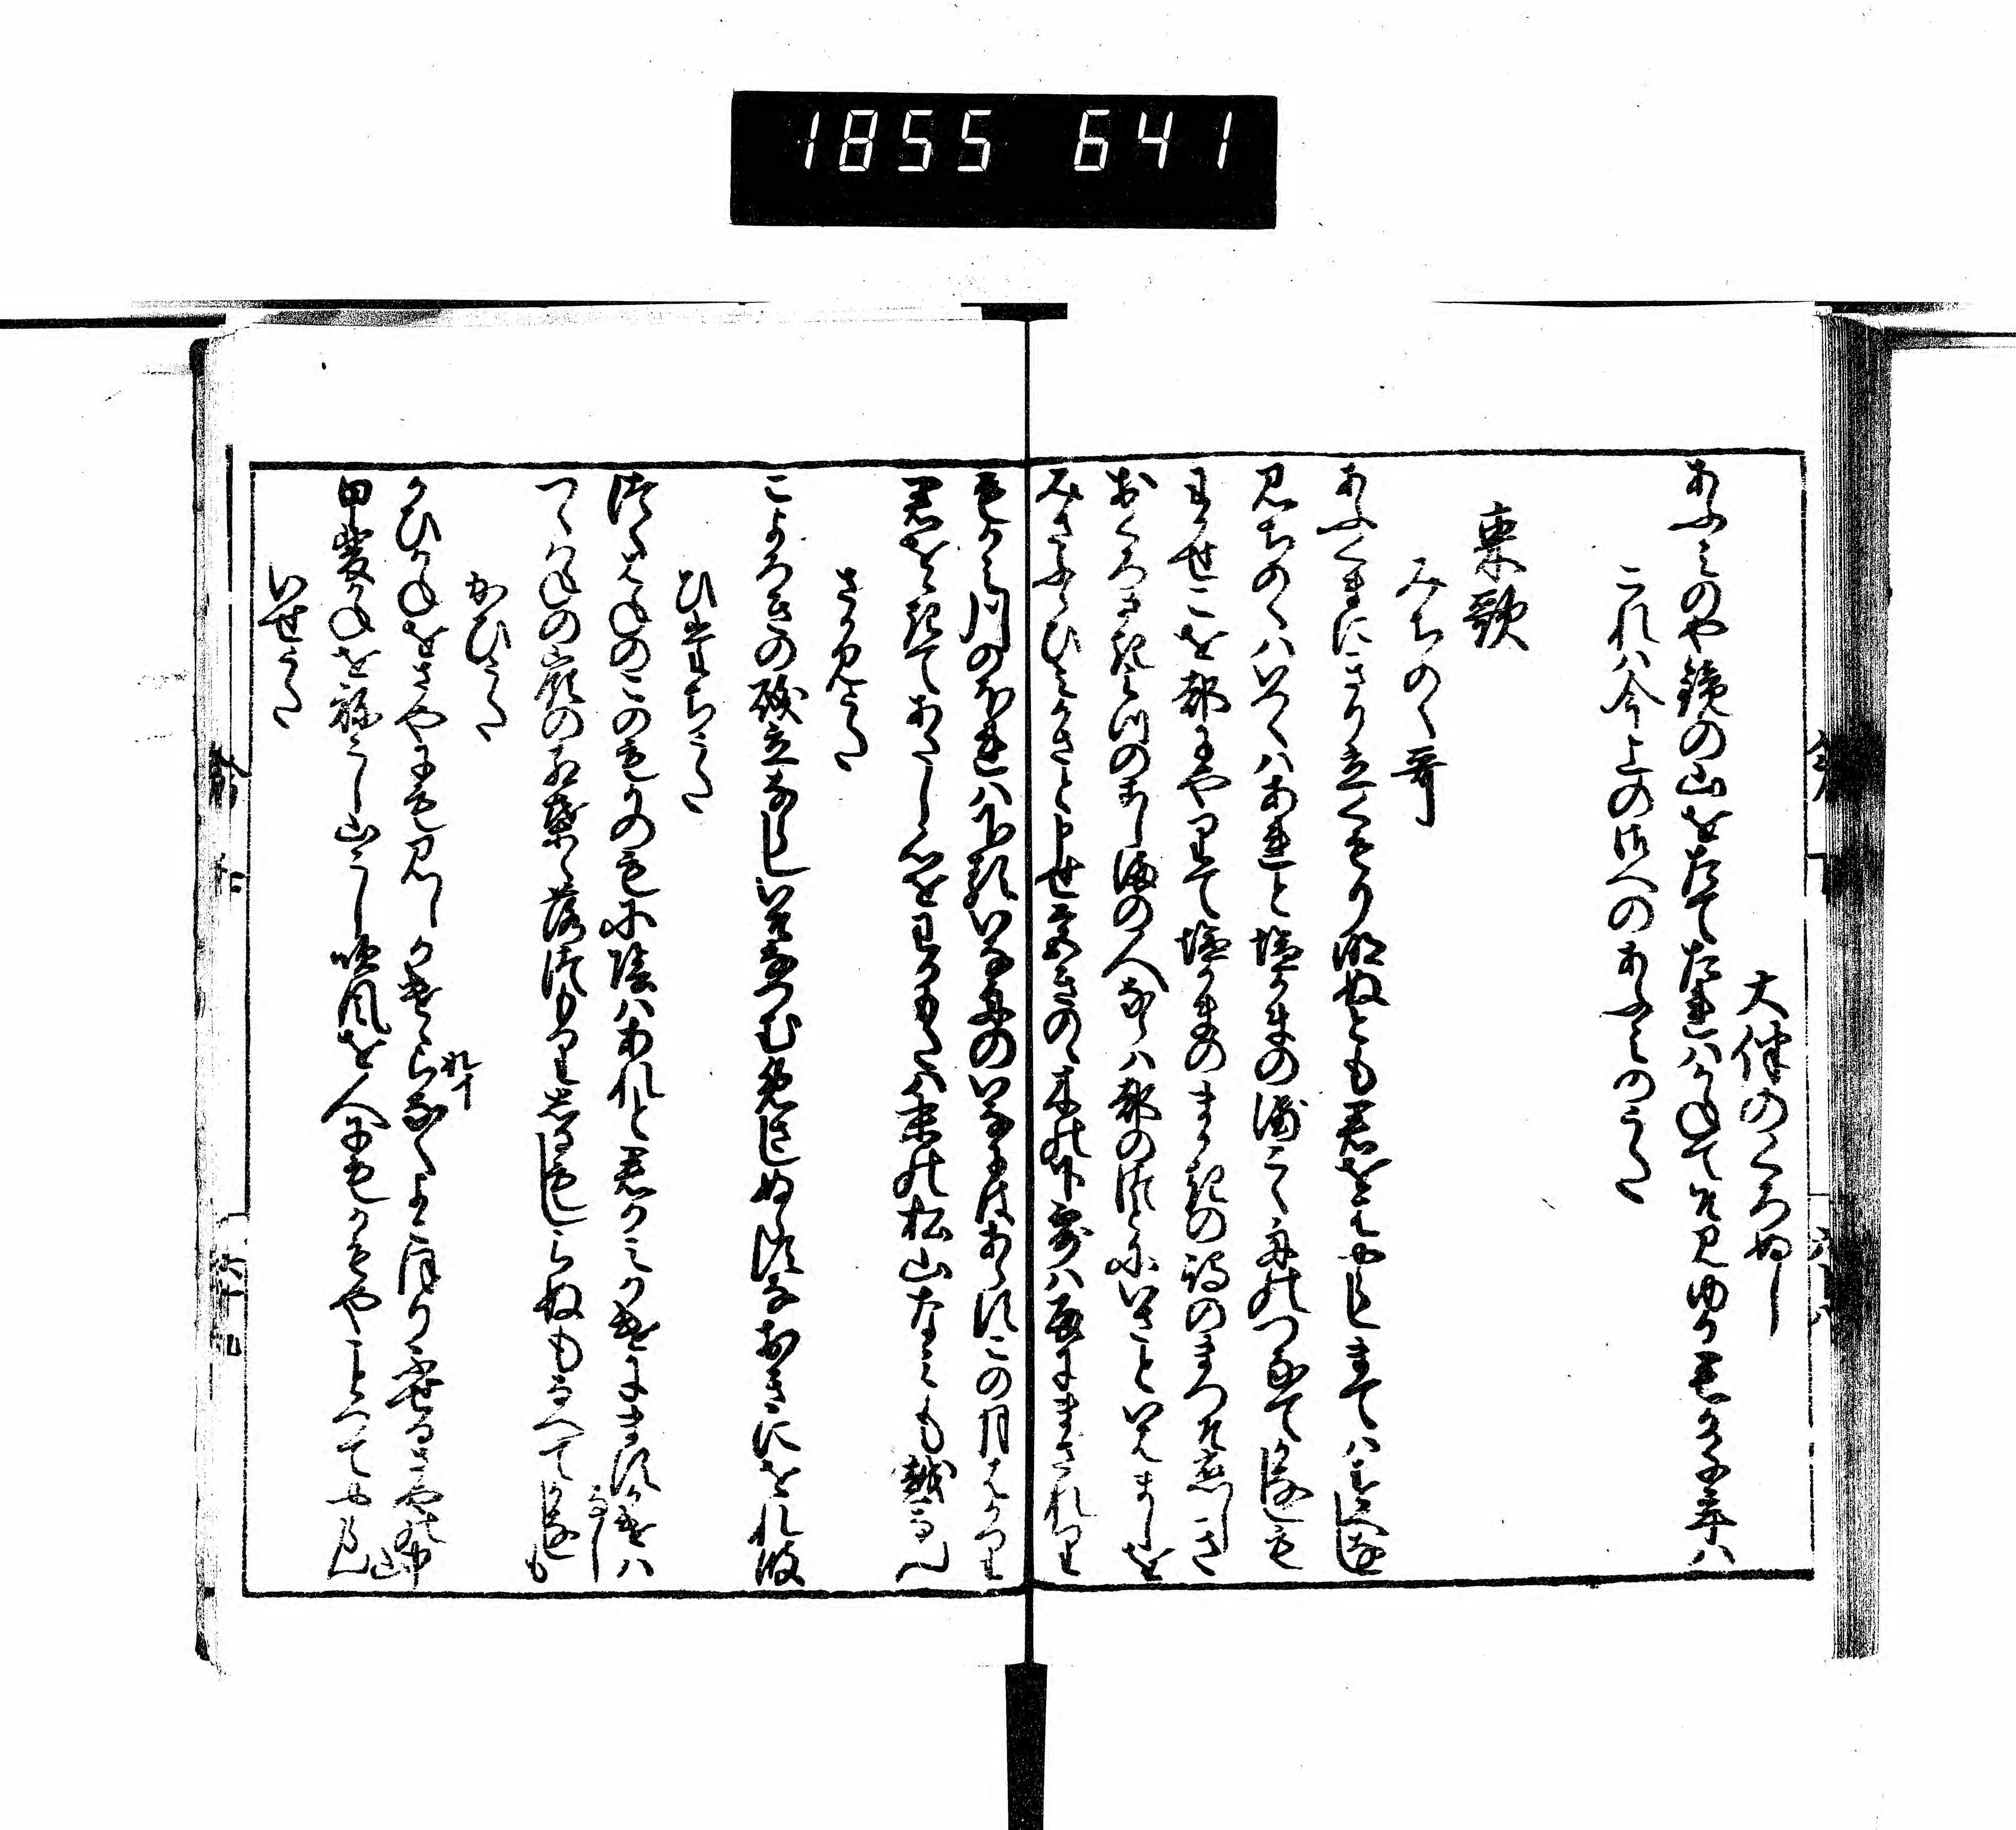 1855 641
大伴のくろぬし
あふみのや鏡の山をたてたれはかねてそ見ゆる君か千年は
これは今上の御へのあふみのうた
東歌
みちのく哥
あふくまにきり立くもり明ぬとも君をはやらしまてはすへなし
みちのくはいつくはあれと塩かまの浦こく舟のつなてかなしも
わかせこを都にやりて塩かまのまかきの嶋のまつそ恋しき
おくろさきみつのこしまの人ならは都のつとにいさといはましを
みさふらひみかさと申せ宮きのゝ木の下露は雨にまされり
もかみ川のほれは下るいな舟のいなにはあらすこの月はかり
君をゝきてあたし心をわかもたは末の松山なみも越なん
さかみうた
こよろきの礒立ならしいそなつむめさしぬらすなおきにをれ波
ひたちうた
つくはねのこのもかのもに陰はあれと君かみかけにます陰は
なし
つくはねの嶺の紅葉ゝ落つもりしるもしらぬもなへてかなしも
かひうた
かひかねをさやにも見しかけゝらなくよこほりふせるさやの中
山
甲斐かねを祢こし山こし吹風を人にもかもやことつてやらん
いせうた